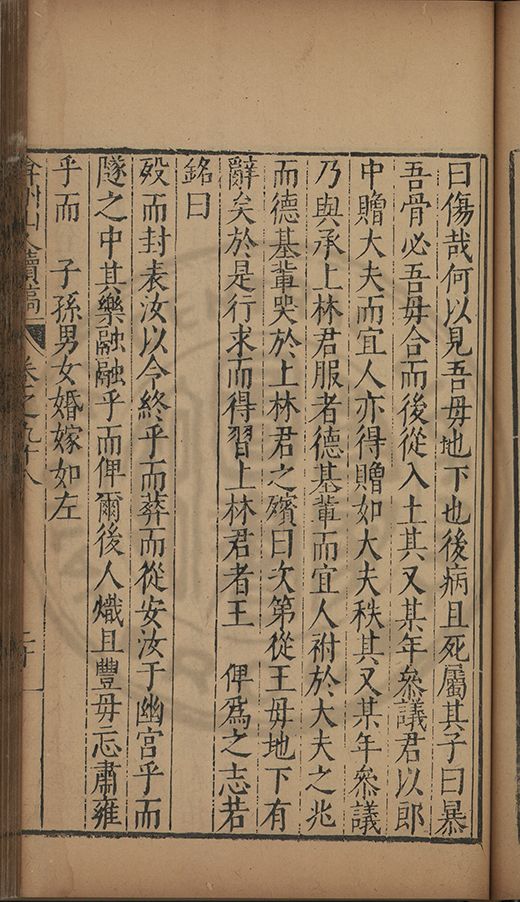 曰傷哉何以見吾母地下也後病且死屬其子曰暴
吾骨必吾母合而後從入土其又某年叅議君以郎
中贈大夫而宜人亦得贈如大夫秩其又某年叅議
乃與承上林君服者德基輩而宜人祔於大夫之兆
而德基輩哭於上林君之殯曰次第從王母地下有
辭矣於是行求而得習上林君者王 俾爲之志若
銘曰
歿而封表汝以令終乎而葬而從安汝于幽宮乎而
隧之中其樂融融乎而俾爾後人熾且豐毋忘肅雍
乎而 子孫男女婚嫁如左
弇州山人續稿 卷之九十八 二十一